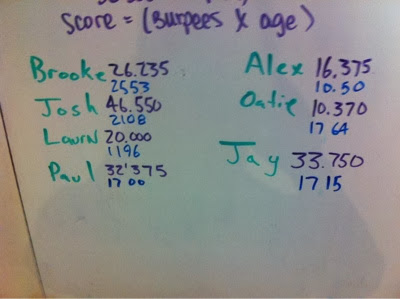 Score = (Burpees x age)
Brooke 26.235
2553
Josh 46.550
2108
Laurn 20,000
1196
Paul 32'375
17 00
Alex 16,375
10.50
Oatie 10.370
17 64
Jay 33.750
17 15